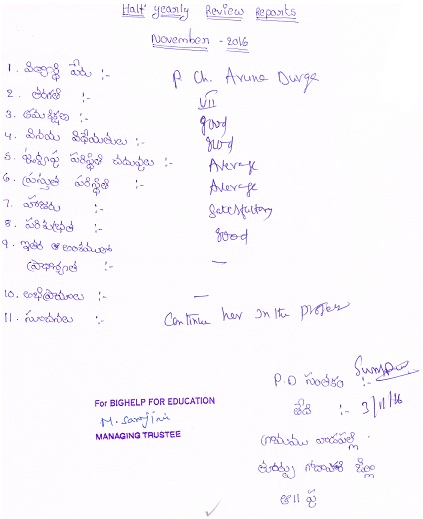 Half yearly Review Reports
November - 2016
1. విద్యార్థి పేరు :- P Ch. Aruna Durga
2. తరగతి :- VII
3. క్రమశిక్షణ :- good
4. వినయ విధేయతలు :- good
5. ఆరోగ్య పరిస్థితి :- Average
6. ప్రస్తుత పరిస్థితి :- Average
7. హాజరు :- Satisfactory
8. పరిశుభ్రత :- good
9. ఇతర
ప్రాధాన్యత :- —
10. అభిప్రాయాలు :- —
11. సూచనలు :- Continue her in the
P.D సంతకం :-
తేది :- 3/11/16
గ్రామము వాడపల్లి
తూర్పు గోదావరి జిల్లా
For BIGHELP FOR EDUCATION
M. Sarojini
MANAGING TRUSTEE